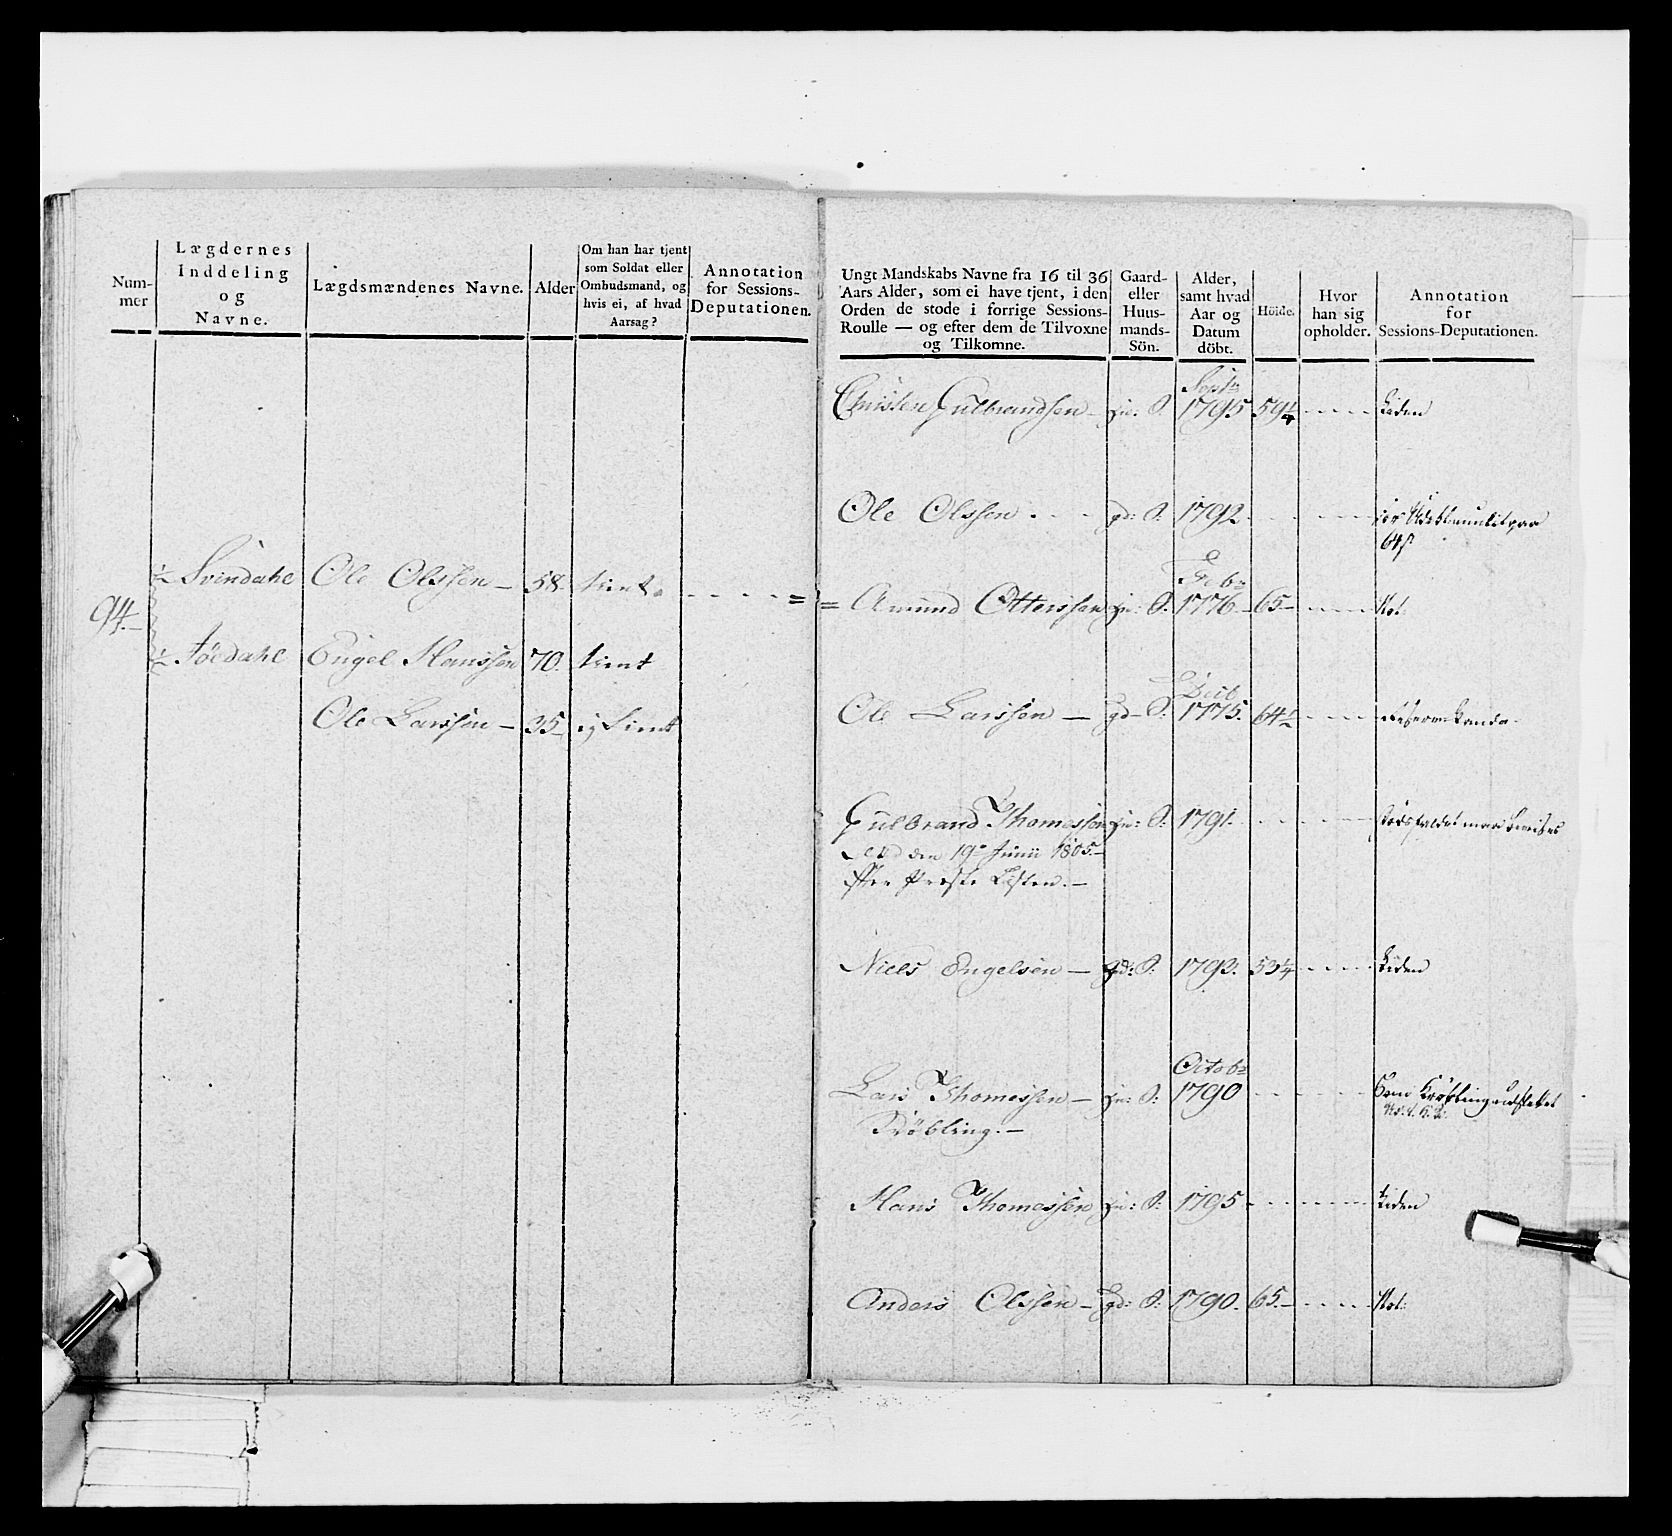 Num-
mer
Lægdernes
Inddeling
og
Navne.
Lægdsmændenes Navne.
Alder
Om han har tjent
som Soldat eller
Ombudsmand, og
hvis ei, af hvad
Aarsag?
Annotation
for Sessions-
Deputationen.
94.
½ Svindahl Ole Olssen — 58. tient.
½ Engel Hanssen 70. tient
Ole Larssen — 35 ej tient
Ungt Mandskabs Navne fra 16 til 36
Aars Alder, som ei have tjent, i den
Orden de stode i forrige Sessions-
Roulle — og efter dem de Tilvoxne
og Tilkomne.
Gaard-
eller
Huus-
mands-
Sön.
Alder,
samt hvad
Aar og
Datum
döbt.
Höide.
Hvor
han sig
opholder.
Annotation
for
Sessions-Deputationen.
Septr
Christen Gulbrandsen — hu: S. 1795 59¼ liden
Ole Olssen gd: S. 1792
Febr
= Amund Otterssen hu: S. 1776 65 — Not:
Ole Larssen — gd S. 1775. 64½
Gulbrand Thomessen hu: S. 1791.
den 19de Junii 1805 —
Præste Listen. —
Niels Engelsen — gd: S. 1793. 53¼ liden
Octobr
Lars Thomessen — hu: S. 1790
Kröbling. —
Hans Thomessen hu: S. 1795 liden
Anders Olssen — gd: S. 1790. 65. — Not: